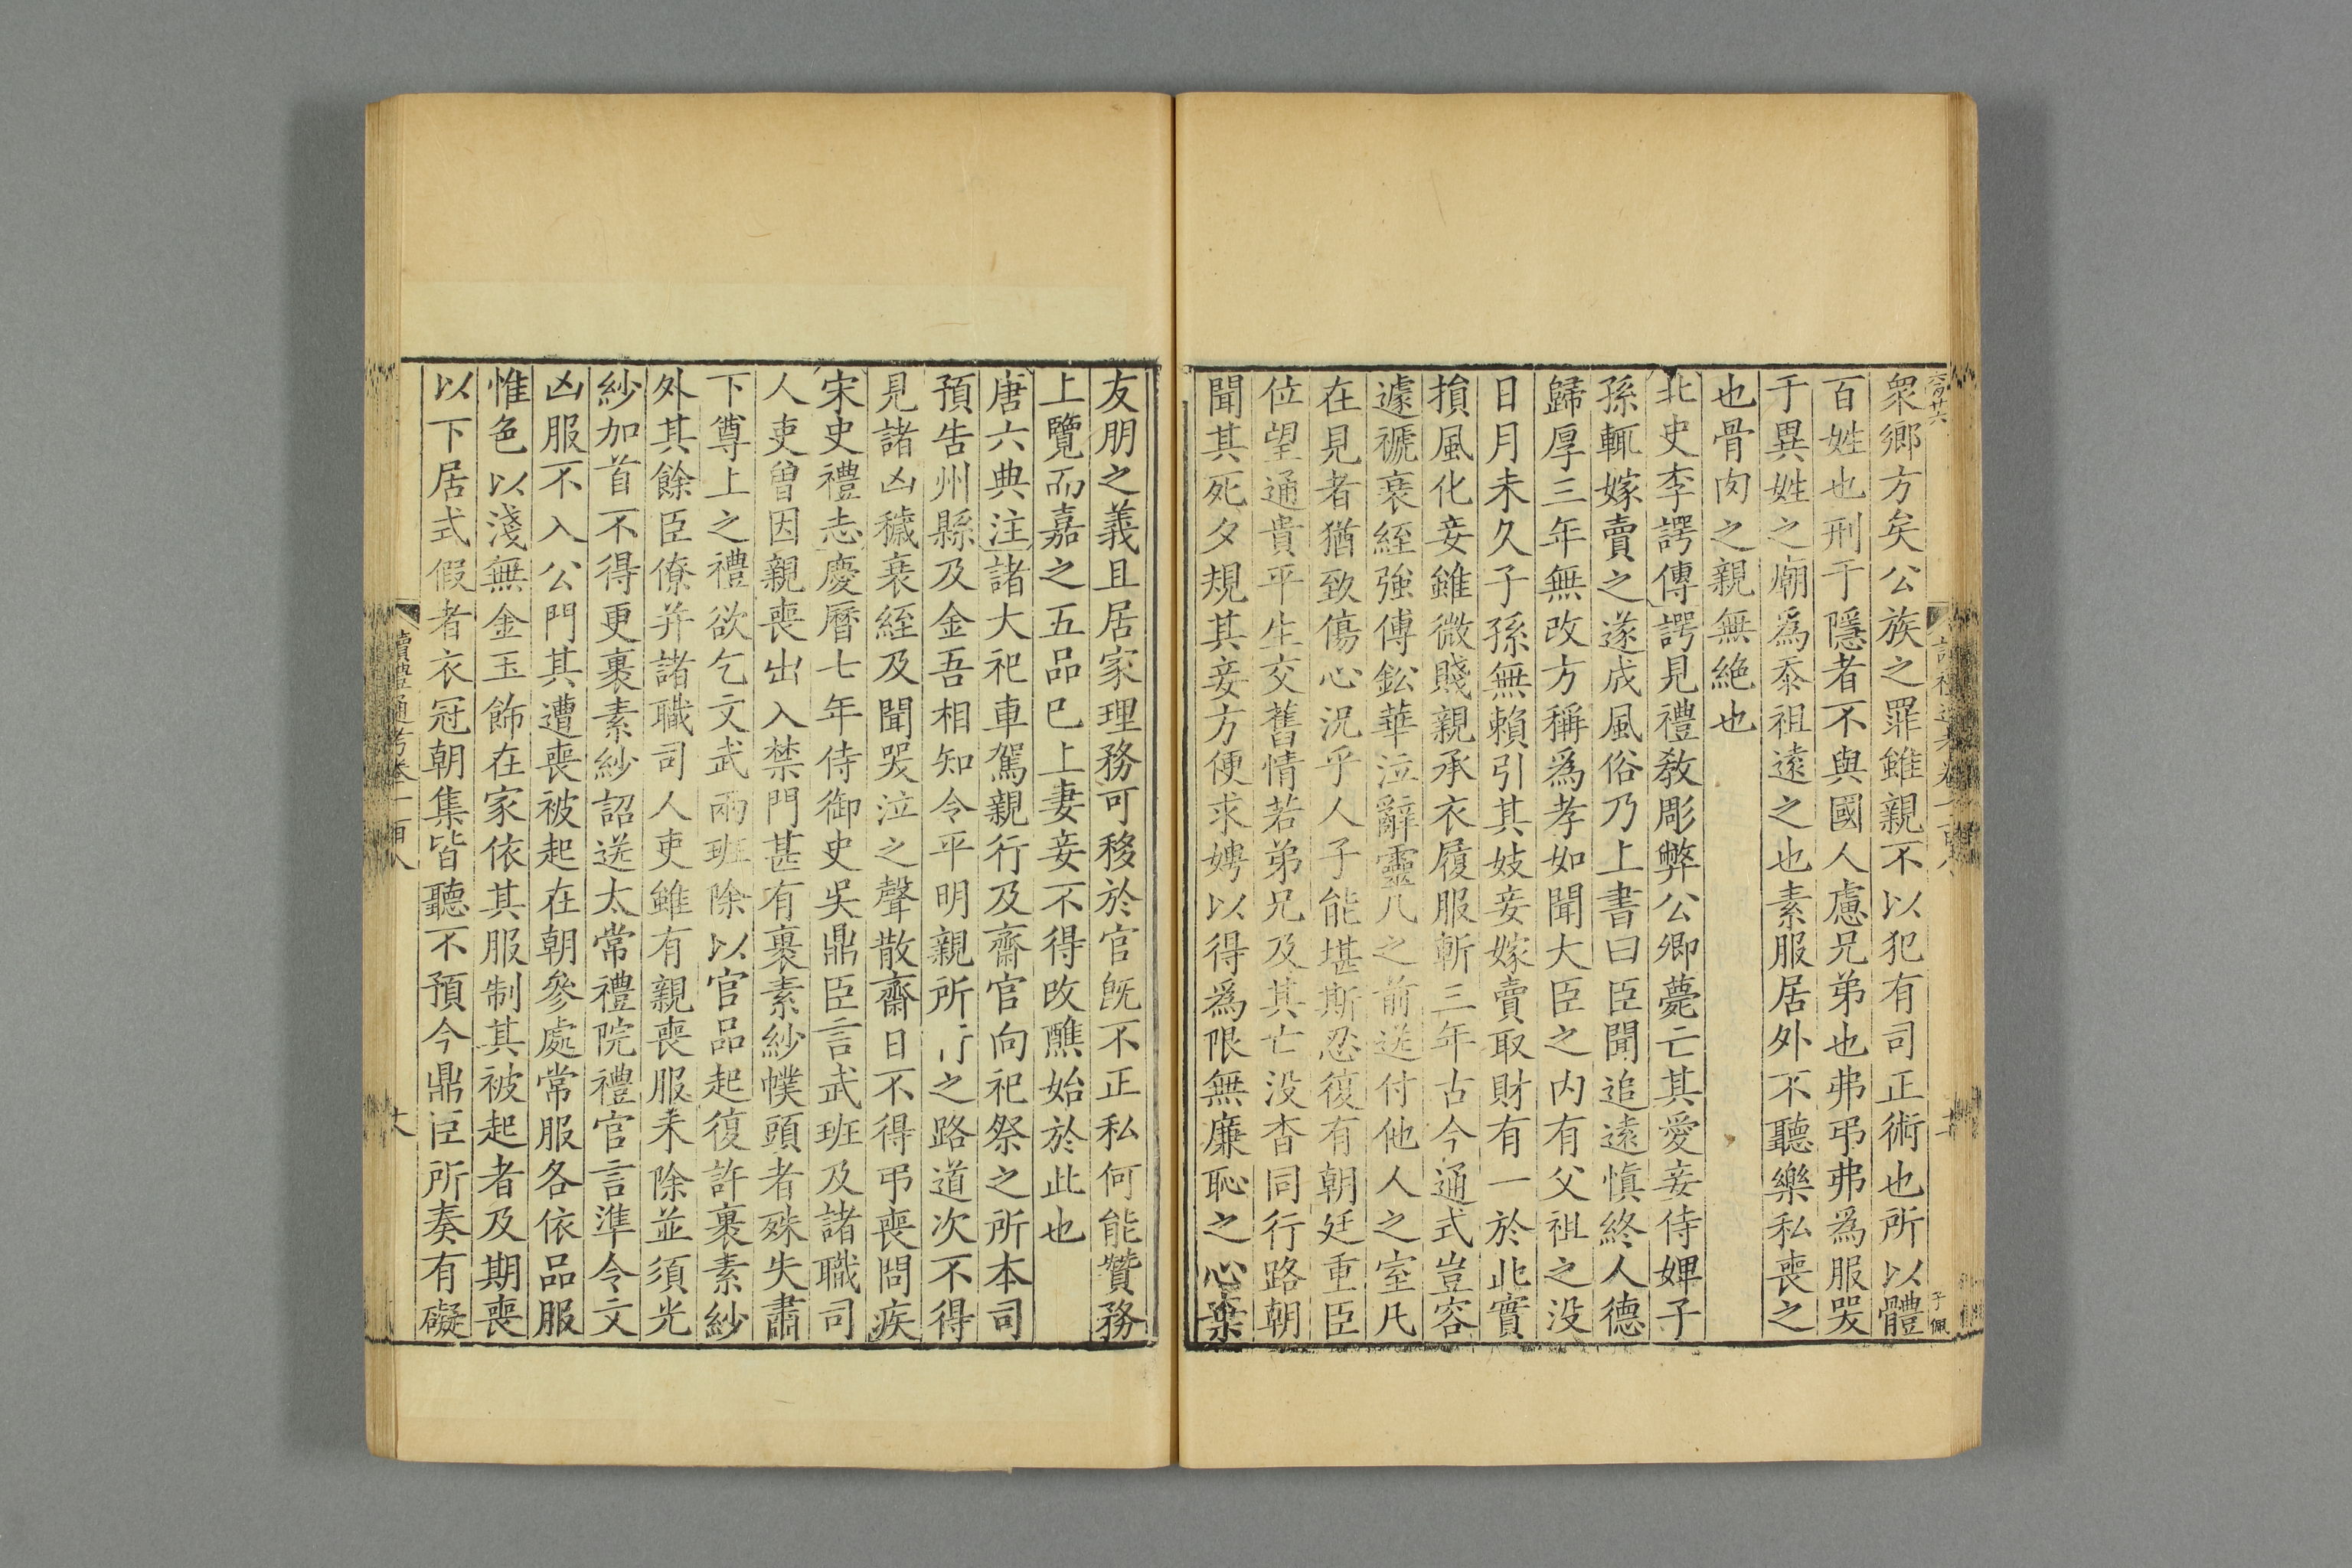 衆鄉方矣公族之罪雖親不以犯有司正術也所以體
百姓也刑于隱者不與國人慮兄弟也弗弔弗爲服哭
于異姓之廟爲忝祖遠之也素服居外不聽樂私喪之
也骨肉之親無絶也
北史李諤傳諤見禮敎彫弊公卿薨亡其愛妾侍婢子
孫輒嫁賣之遂成風俗乃上書曰臣聞追遠愼終人德
歸厚三年無改方稱爲孝如聞大臣之内有父祖之没
日月未久子孫無賴引其妓妾嫁賣取財有一於此實
損風化妾雖微賤親承衣履服斬三年古今通式豈容
遽褫衰絰強傅鉛華泣辭靈几之前送付他人之室凡
在見者猶致傷心況乎人子能堪斯忍復有朝廷重臣
位望通貴平生交舊情若弟兄及其亡没杳同行路朝
聞其死夕規其妾方便求娉以得爲限無廉恥之心棄
友朋之義且居家理務可移於官旣不正私何能贊務
上覽而嘉之五品已上妻妾不得改醮始於此也
唐六典注諸大祀車駕親行及齋官向祀祭之所本司
預告州縣及金吾相知令平明親所行之路道次不得
見諸凶穢衰絰及聞哭泣之聲散齋日不得弔喪問疾
宋史禮志慶曆七年侍御史吳鼎臣言武班及諸職司
人吏曾因親喪出入禁門甚有裹素紗幞頭者殊失肅
下尊上之禮欲乞文武兩班除以官品起復許裹素紗
外其餘臣僚并諸職司人吏雖有親喪服未除並須光
紗加首不得更裹素紗詔送太常禮院禮官言準令文
凶服不入公門其遭喪被起在朝參處常服各依品服
惟色以淺無金玉飾在家依其服制其被起者及期喪
以下居式假者衣冠朝集皆聽不預今鼎臣所奏有礙
讀禮通考卷一百八